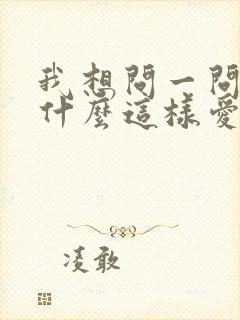 我想問一問
什麼這樣愛
凌敢